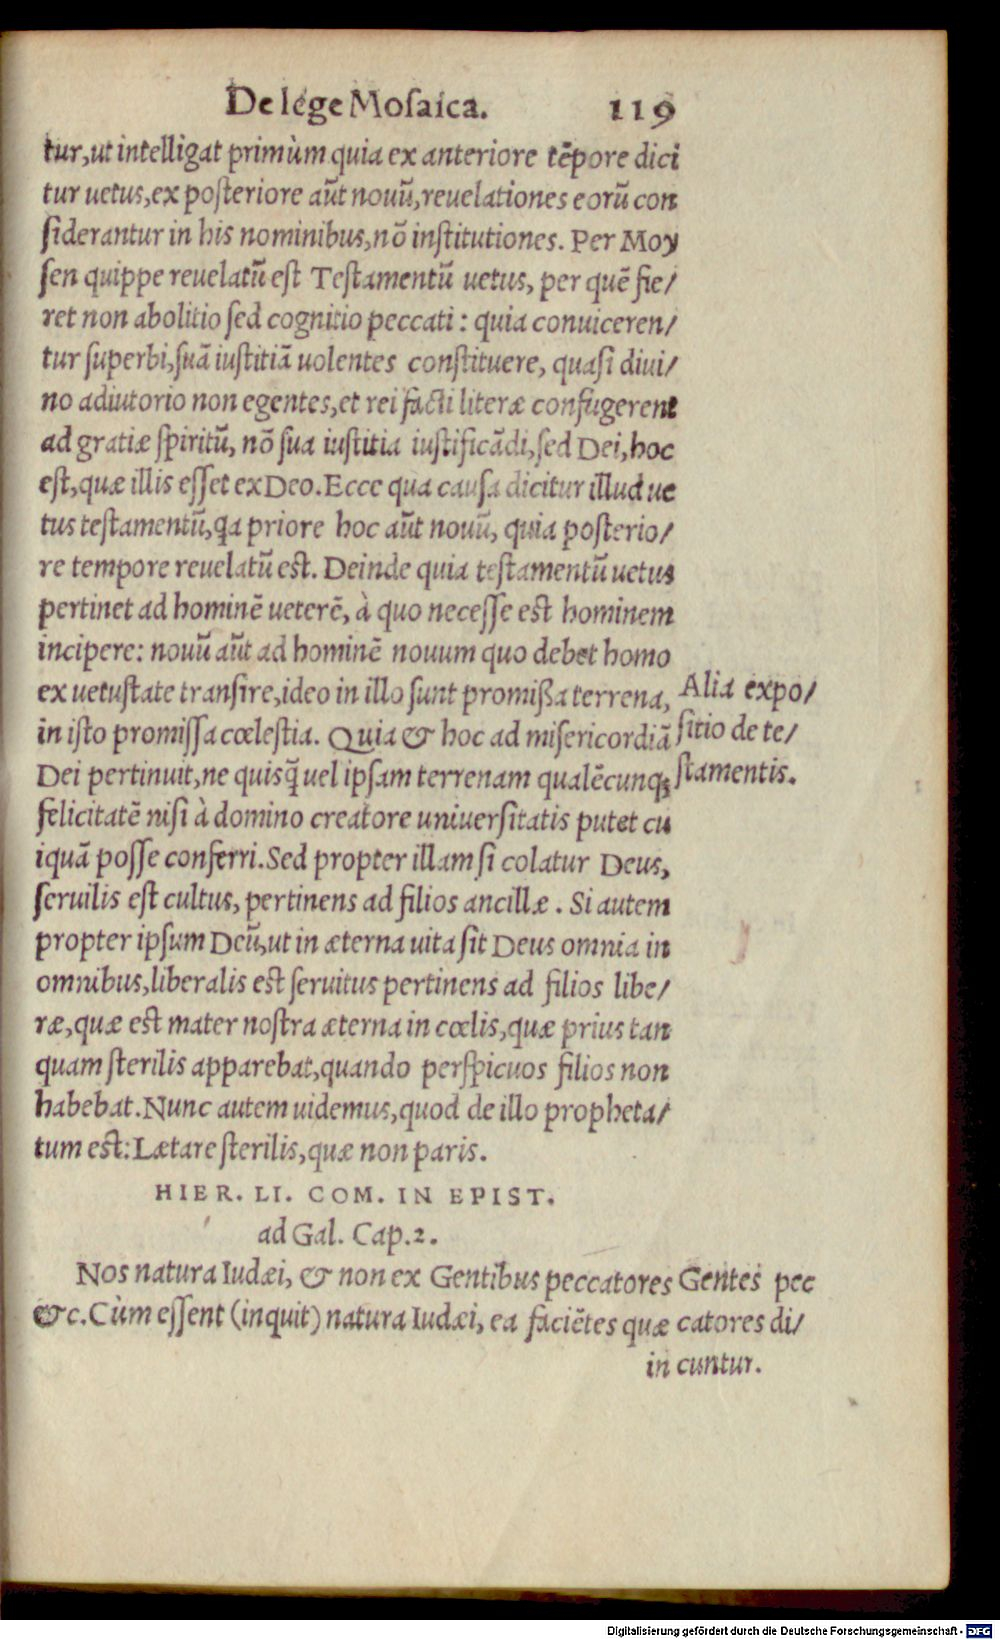 De lege Mosaica. 119
tur, ut intelligat primùm quia ex anteriore tẽpore dici
tur uetus, ex posteriore aũt nouũ, reuelationes eorũ con
siderantur in his nominibus, nõ institutiones. Per Moy
sen quippe reuelatũ est Testamentũ uetus, per quẽ fie/
ret non abolitio sed cognitio peccati: quia conuiceren/
tur superbi, suã iustitiã uolentes constituere, quasi diui/
no adiutorio non egentes, et rei facti literæ confugerent
ad gratiæ spiritũ, nõ sua iustitia iustificãdi, sed Dei, hoc
est, quæ illis esset ex Deo. Ecce qua causa dicitur illud ue
tus testamentũ, qa priore hoc aũt nouũ, quia posterio/
re tempore reuelatũ est. Deinde quia testamentũ uetus
pertinet ad hominẽ ueterẽ, à quo necesse est hominem
incipere: nouũ aũt ad hominẽ nouum quo debet homo
ex uetustate transire, ideo in illo sunt promißa terrena,
in isto promissa cœlestia. Quia & hoc ad misericordiã
Dei pertinuit, ne quisq̃ uel ipsam terrenam qualẽcunqꝫ
felicitatẽ nisi à domino creatore uniuersitatis putet cu
iquã posse conferri. Sed propter illam si colatur Deus,
seruilis est cultus, pertinens ad filios ancillæ. Si autem
propter ipsum Deũ, ut in æterna uita sit Deus omnia in
omnibus, liberalis est seruitus pertinens ad filios libe/
ræ, quæ est mater nostra æterna in cœlis, quæ prius tan
quam sterilis apparebat, quando perspicuos filios non
habebat. Nunc autem uidemus, quod de illo propheta/
tum est: Lætare sterilis, quæ non paris.
Alia expo/
sitio de te/
stamentis.
HIER. LI. COM. IN EPIST.
ad Gal. Cap. 2.
Nos natura Iudæi, & non ex Gentibus peccatores
&c. Cùm essent (inquit) natura Iudæi, ea faciẽtes quæ
in
Gentes pec
catores di/
cuntur.
Digitalisierung gefördert durch die Deutsche Forschungsgemeinschaft - DFG